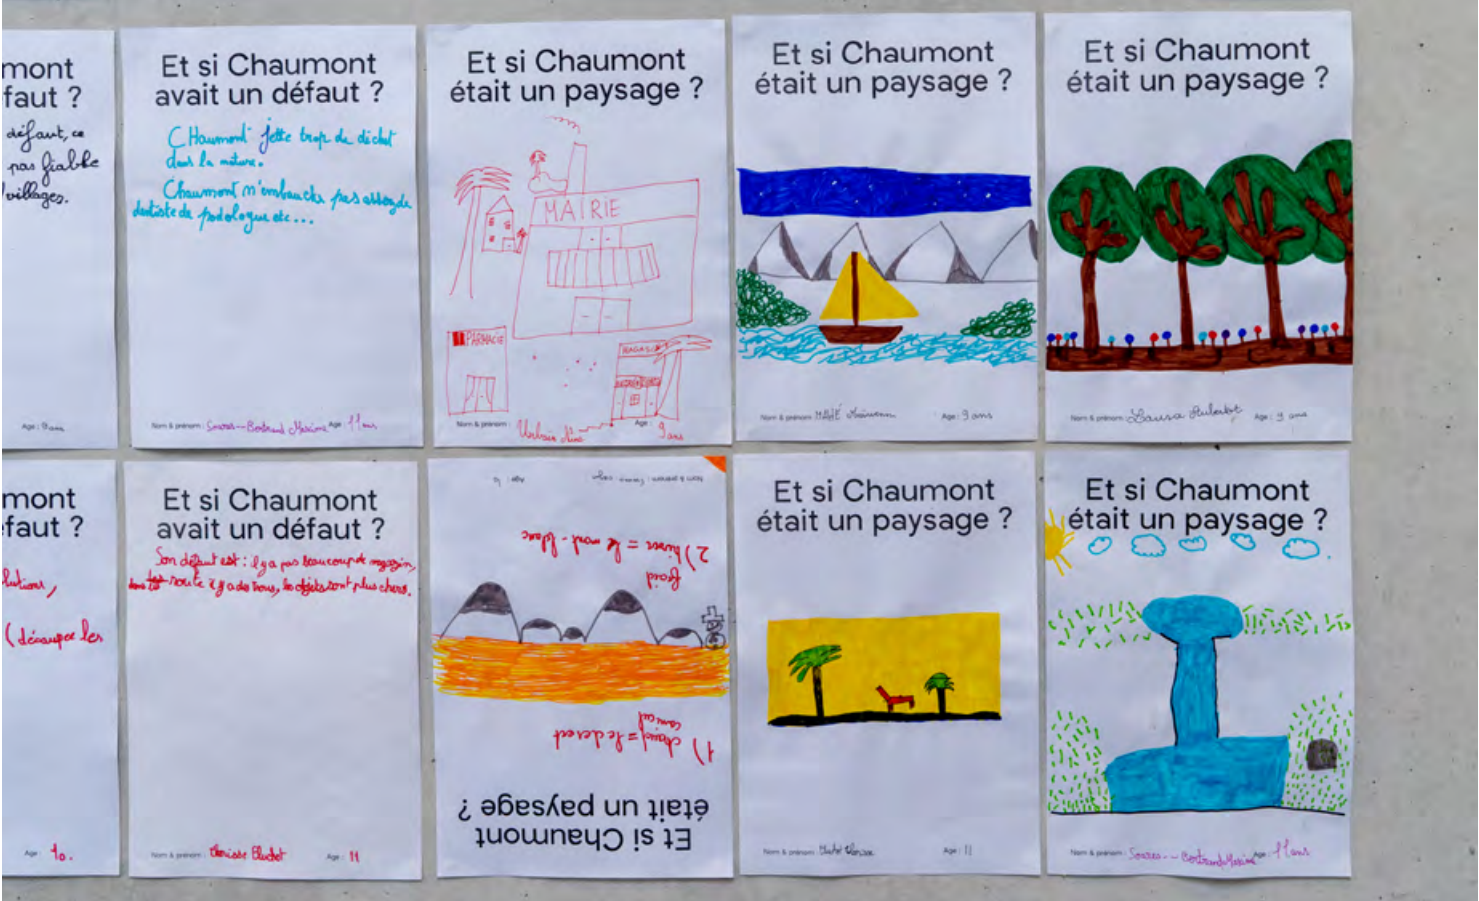 mont
faut ?
défaut, ce
pas fiable
villages.
Age : 9 ans
Et si Chaumont
avait un défaut ?
CHaumont jette trop de déchet
dans la nature.
Chaumont n'embauche pas de
dentiste de podologue etc...
Nom & prénom : Soares-Bertrand Maxime Age : 11 ans
Et si Chaumont
était un paysage ?
MAIRIE
PARMACIE
MAGASIN
Nom & prénom : Urbain Nine Age : 9 ans
Et si Chaumont
était un paysage ?
Nom & prénom : MAHÉ Age : 9 ans
Et si Chaumont
était un paysage ?
Nom & prénom : Age : 9 ans
mont
éfaut ?
(découpe les
Age : 10.
Et si Chaumont
avait un défaut ?
Son défaut est : il y a pas beaucoup de magazin,
route il y a des trous, les objets sont plus chers.
Nom & prénom : Age : 11
Et si Chaumont
était un paysage ?
1) chaud = le desert
2) hiver = le mont-blanc
froid
Nom & prénom : Age :
Et si Chaumont
était un paysage ?
Nom & prénom : Age : 11
Et si Chaumont
était un paysage ?
Nom & prénom : Soares--Bertrand Maxime Age : 11 ans